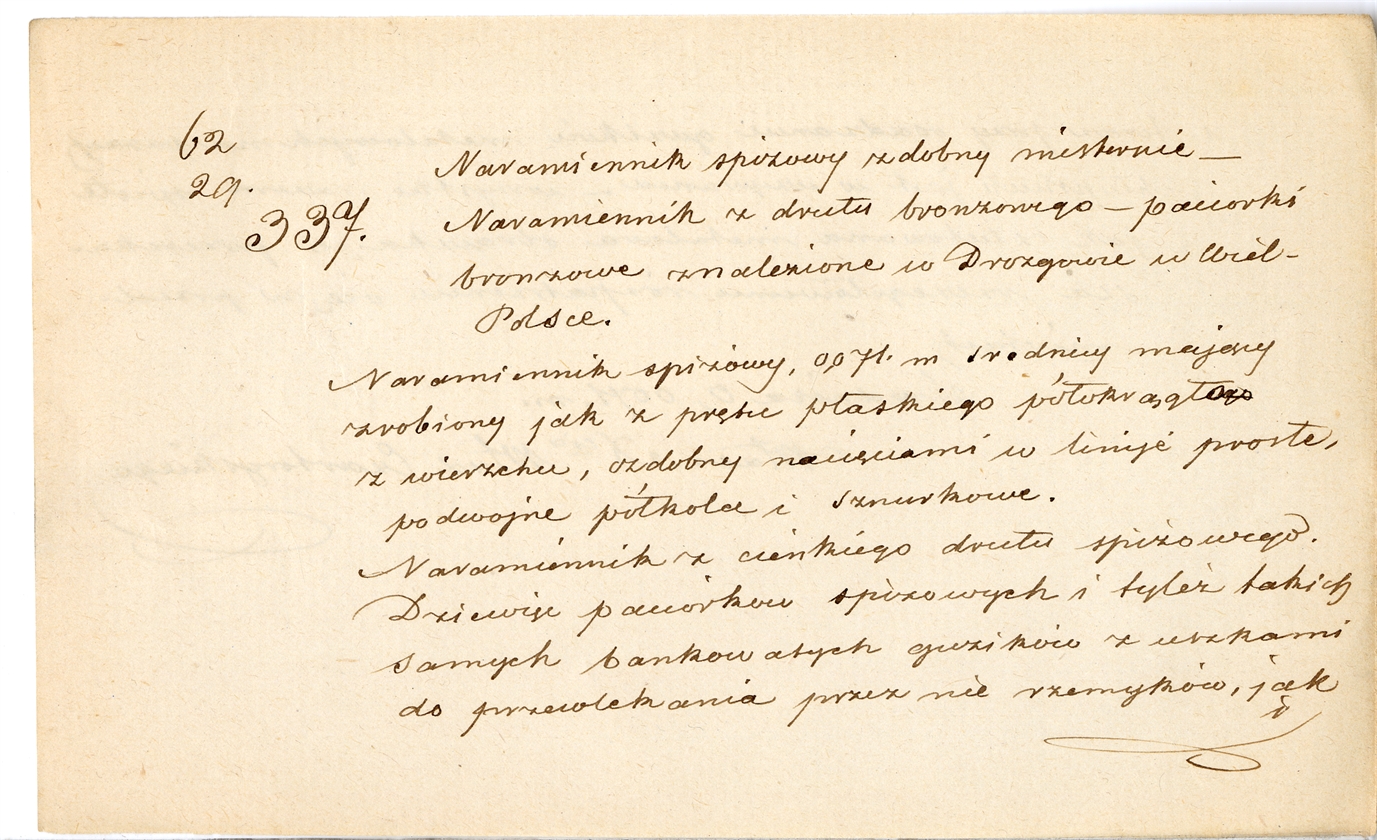 62
29.
337.
Naramiennik spiżowy zdobny misternie —
Naramiennik z drutu bronzowego — paciorki
bronzowe znalezione w Drozgowie w Wiel-
Polsce.
Naramiennik spiżowy, 0,071. m średnicy mający
zrobiony jak z prętu płaskiego półokrągłego
z wierzchu, ozdobny nacięciami w linije proste,
podwojne półkola i sznurkowe.
Naramiennik z cienkiego drutu spiżowego.
Dziewięc paciorkow spiżowych i tyleż takich
samych bankowatych guzików z uszkami
do przewlekania przez nie rzemyków, jak
i